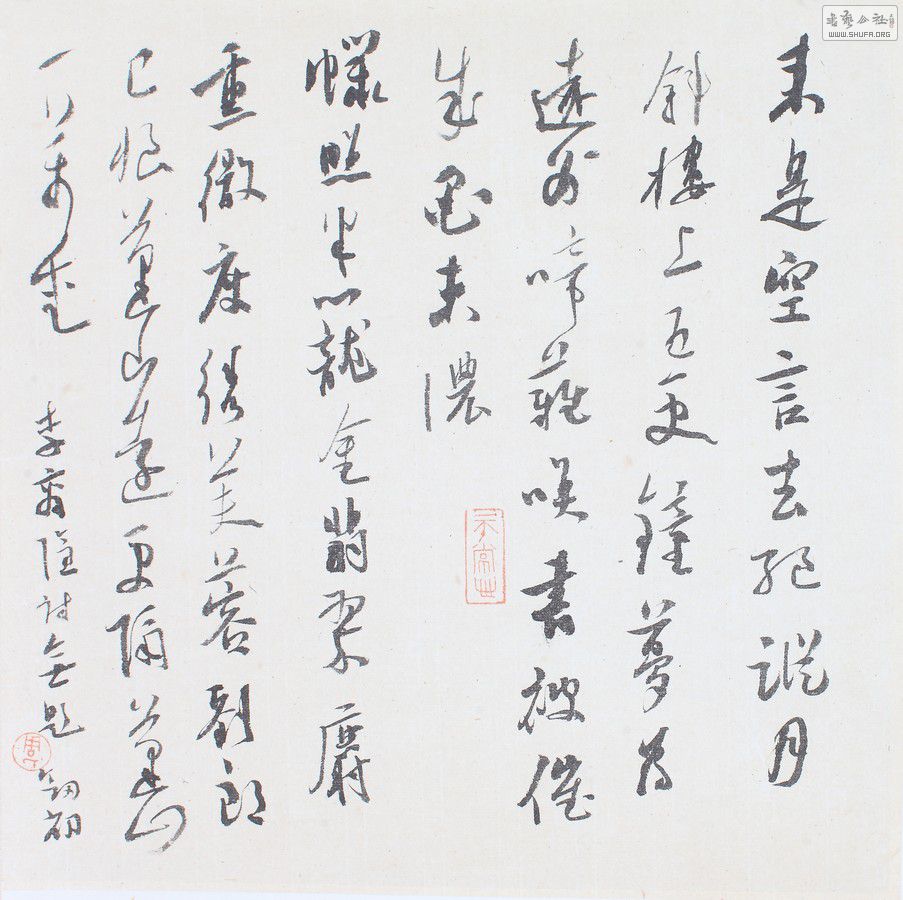 來是空言去絕蹤月
斜樓上五更鐘夢為
遠別啼難喚書被催
成墨未濃
蠟照半籠金翡翠麝
熏微度繡芙蓉劉郎
已恨蓬山遠更隔蓬山
一万重 李商隱詩無題 勛初
書藝公社
WWW.SHUFA.ORG